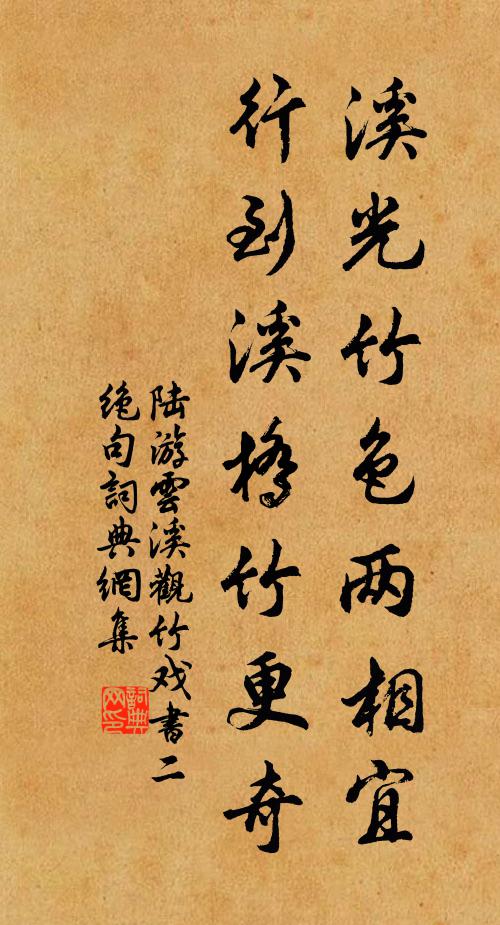 溪光竹色两相宜
行到溪橋竹更奇
陆游雲溪觀竹戏書二
絶句詞典網集
詞典
网印